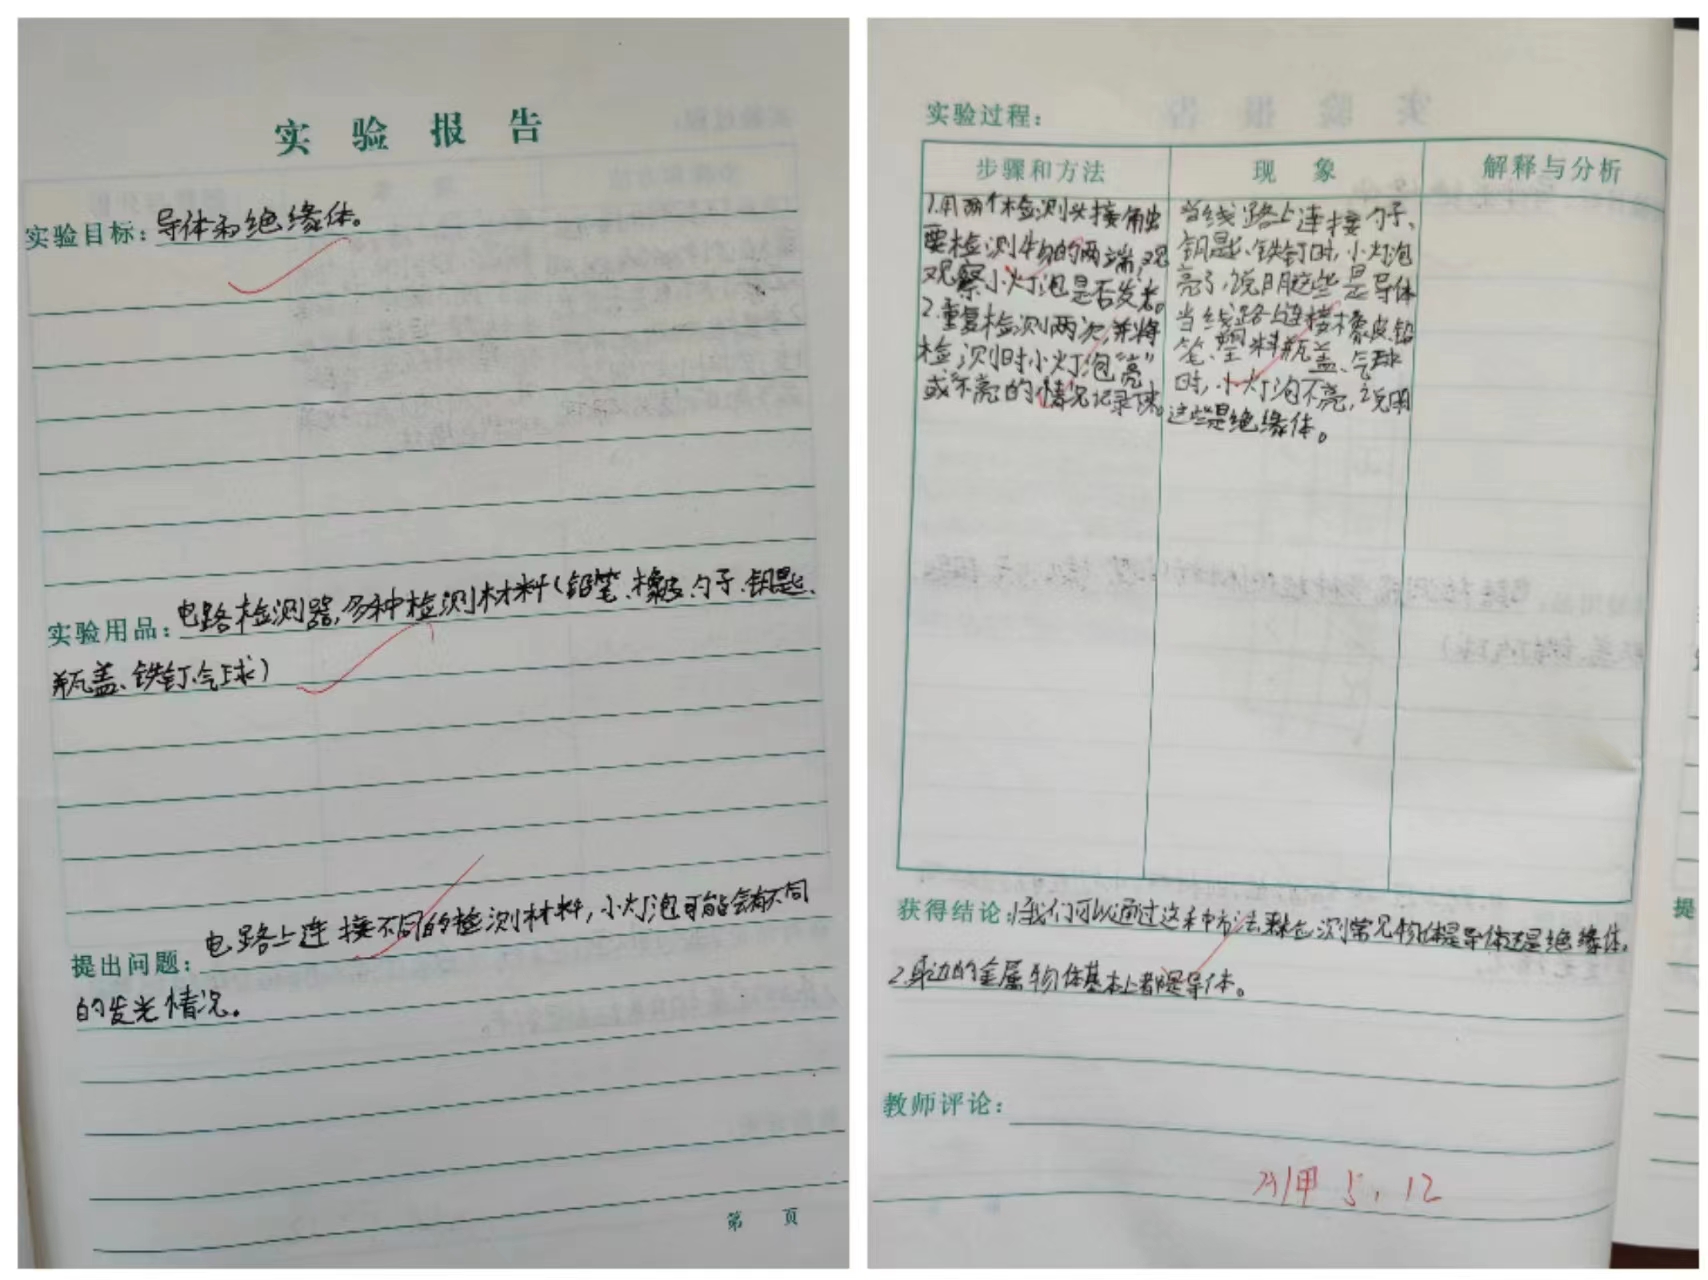 实验报告
实验目标：导体和绝缘体。
实验用品：电路检测器，多种检测材料（铅笔、橡皮、勺子、钥匙、
瓶盖、铁钉、气球）
提出问题：电路上连接不同的检测材料，小灯泡可能会有不同
的发光情况。
第 页
实验过程：
步骤和方法
1.用两个检测头接触
要检测物的两端，观
观察小灯泡是否发光。
2.重复检测两次，并将
检测时小灯泡“亮”
或“不亮”的情况记录下来。
现象
当线路上连接勺子、
钥匙、铁钉时，小灯泡
亮了，说明这些是导体
当线路上连接橡皮、铅
笔、塑料瓶盖、气球
时，小灯泡不亮，说明
这些是绝缘体。
解释与分析
获得结论：1.我们可以通过这种方法来检测常见物体是导体还是绝缘体。
2.身边的金属物体基本上都是导体。
教师评论：
甲 5.12
提